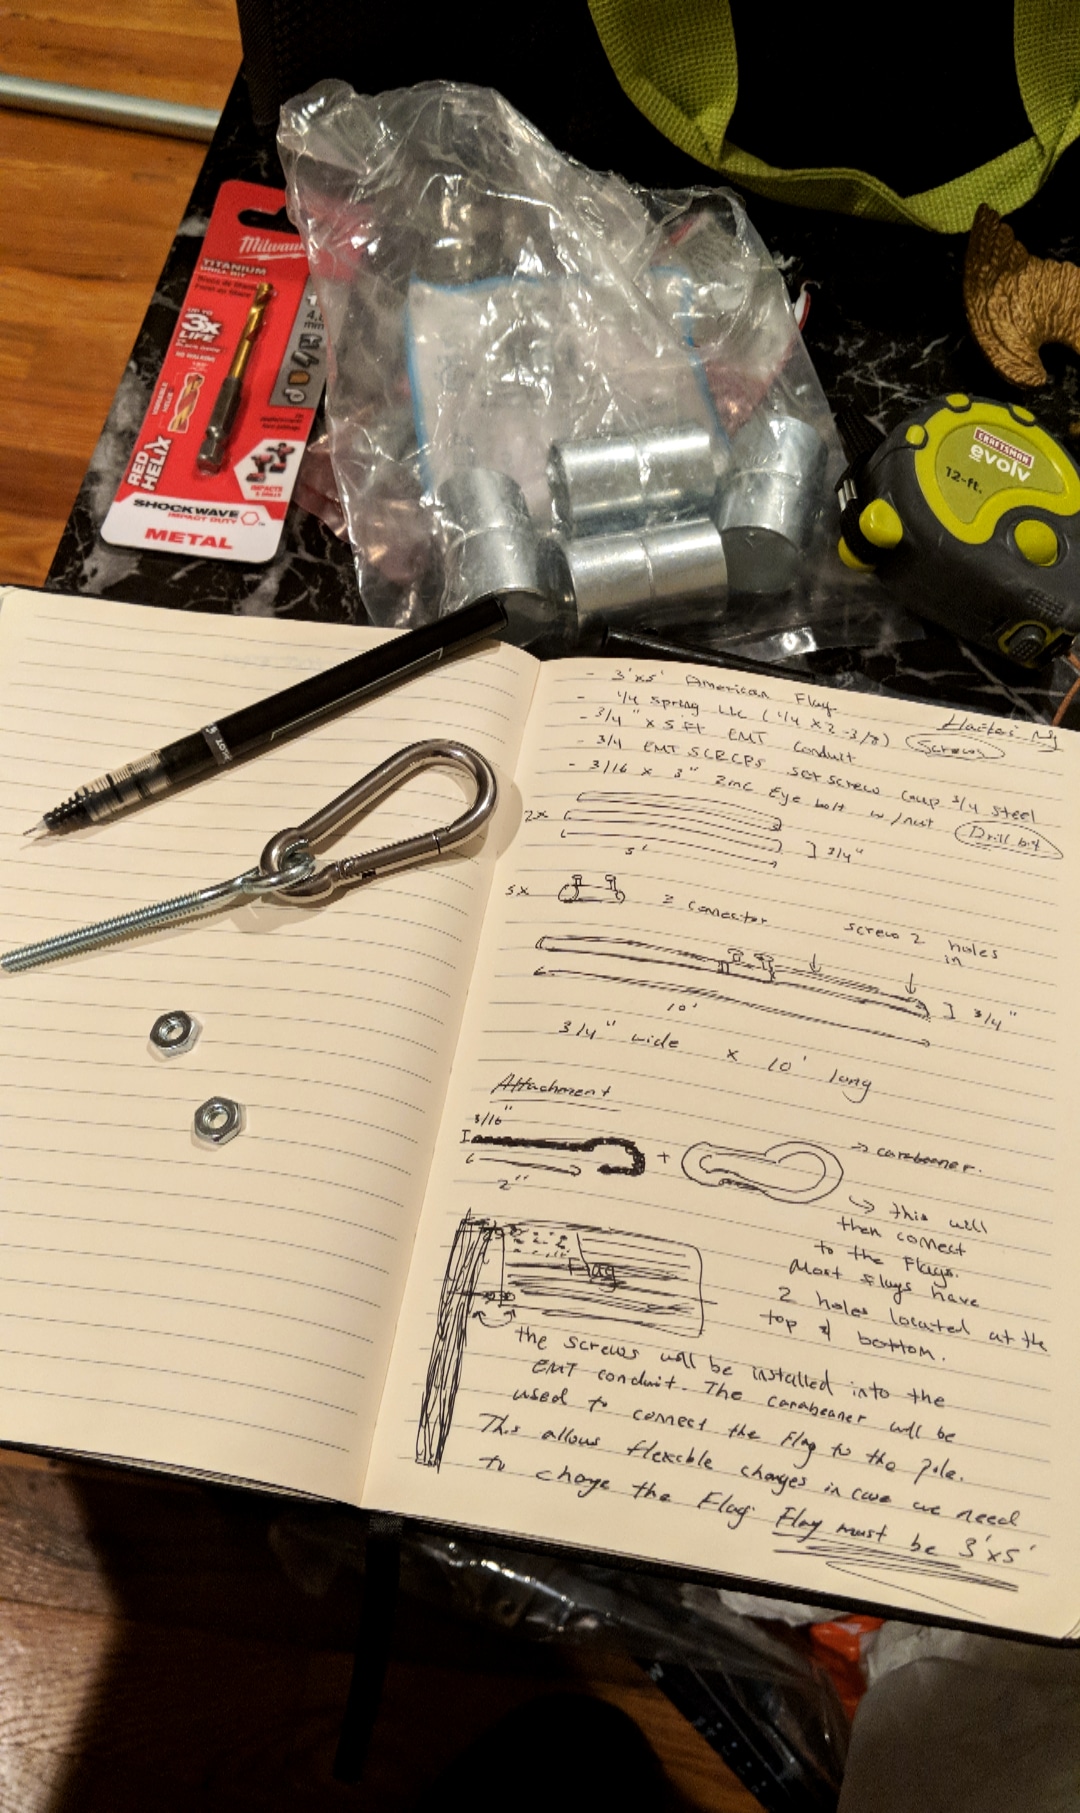 Milwau
TITANIUM
DRILL BIT
UP TO
3X
LIFE
4.
mm
RED
HELIX
SHOCKWAVE
IMPACT DUTY
METAL
CRAFTSMAN
evolv
12-ft.
- 3'x5' American Flag
- 1/4 Spring (1/4 x 2-3/8)
Screws
- 3/4" x 5 ft EMT Conduit
- 3/4 EMT set screw coup 3/4 steel
- 3/16 x 3" zinc Eye bolt w/nut
Drill bit
2x
] 3/4"
5'
connector
screw 2 holes
in
] 3/4"
10'
3/4" wide x 10' long
Attachment
3/16"
+
2"
→ carabeaner.
→ this will
then connect
to the Flags.
Most Flags have
2 holes located at the
top & bottom.
Flag
the screws will be installed into the
EMT conduit. The carabeaner will be
used to connect the Flag to the pole.
This allows flexcble changes in case we need
to change the Flag. Flag must be 3'x5'